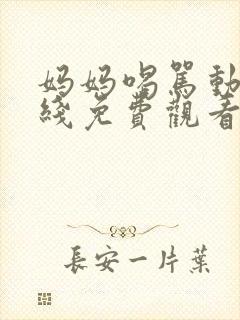 妈妈喝骂動
綫免費觀看
長安一片葉